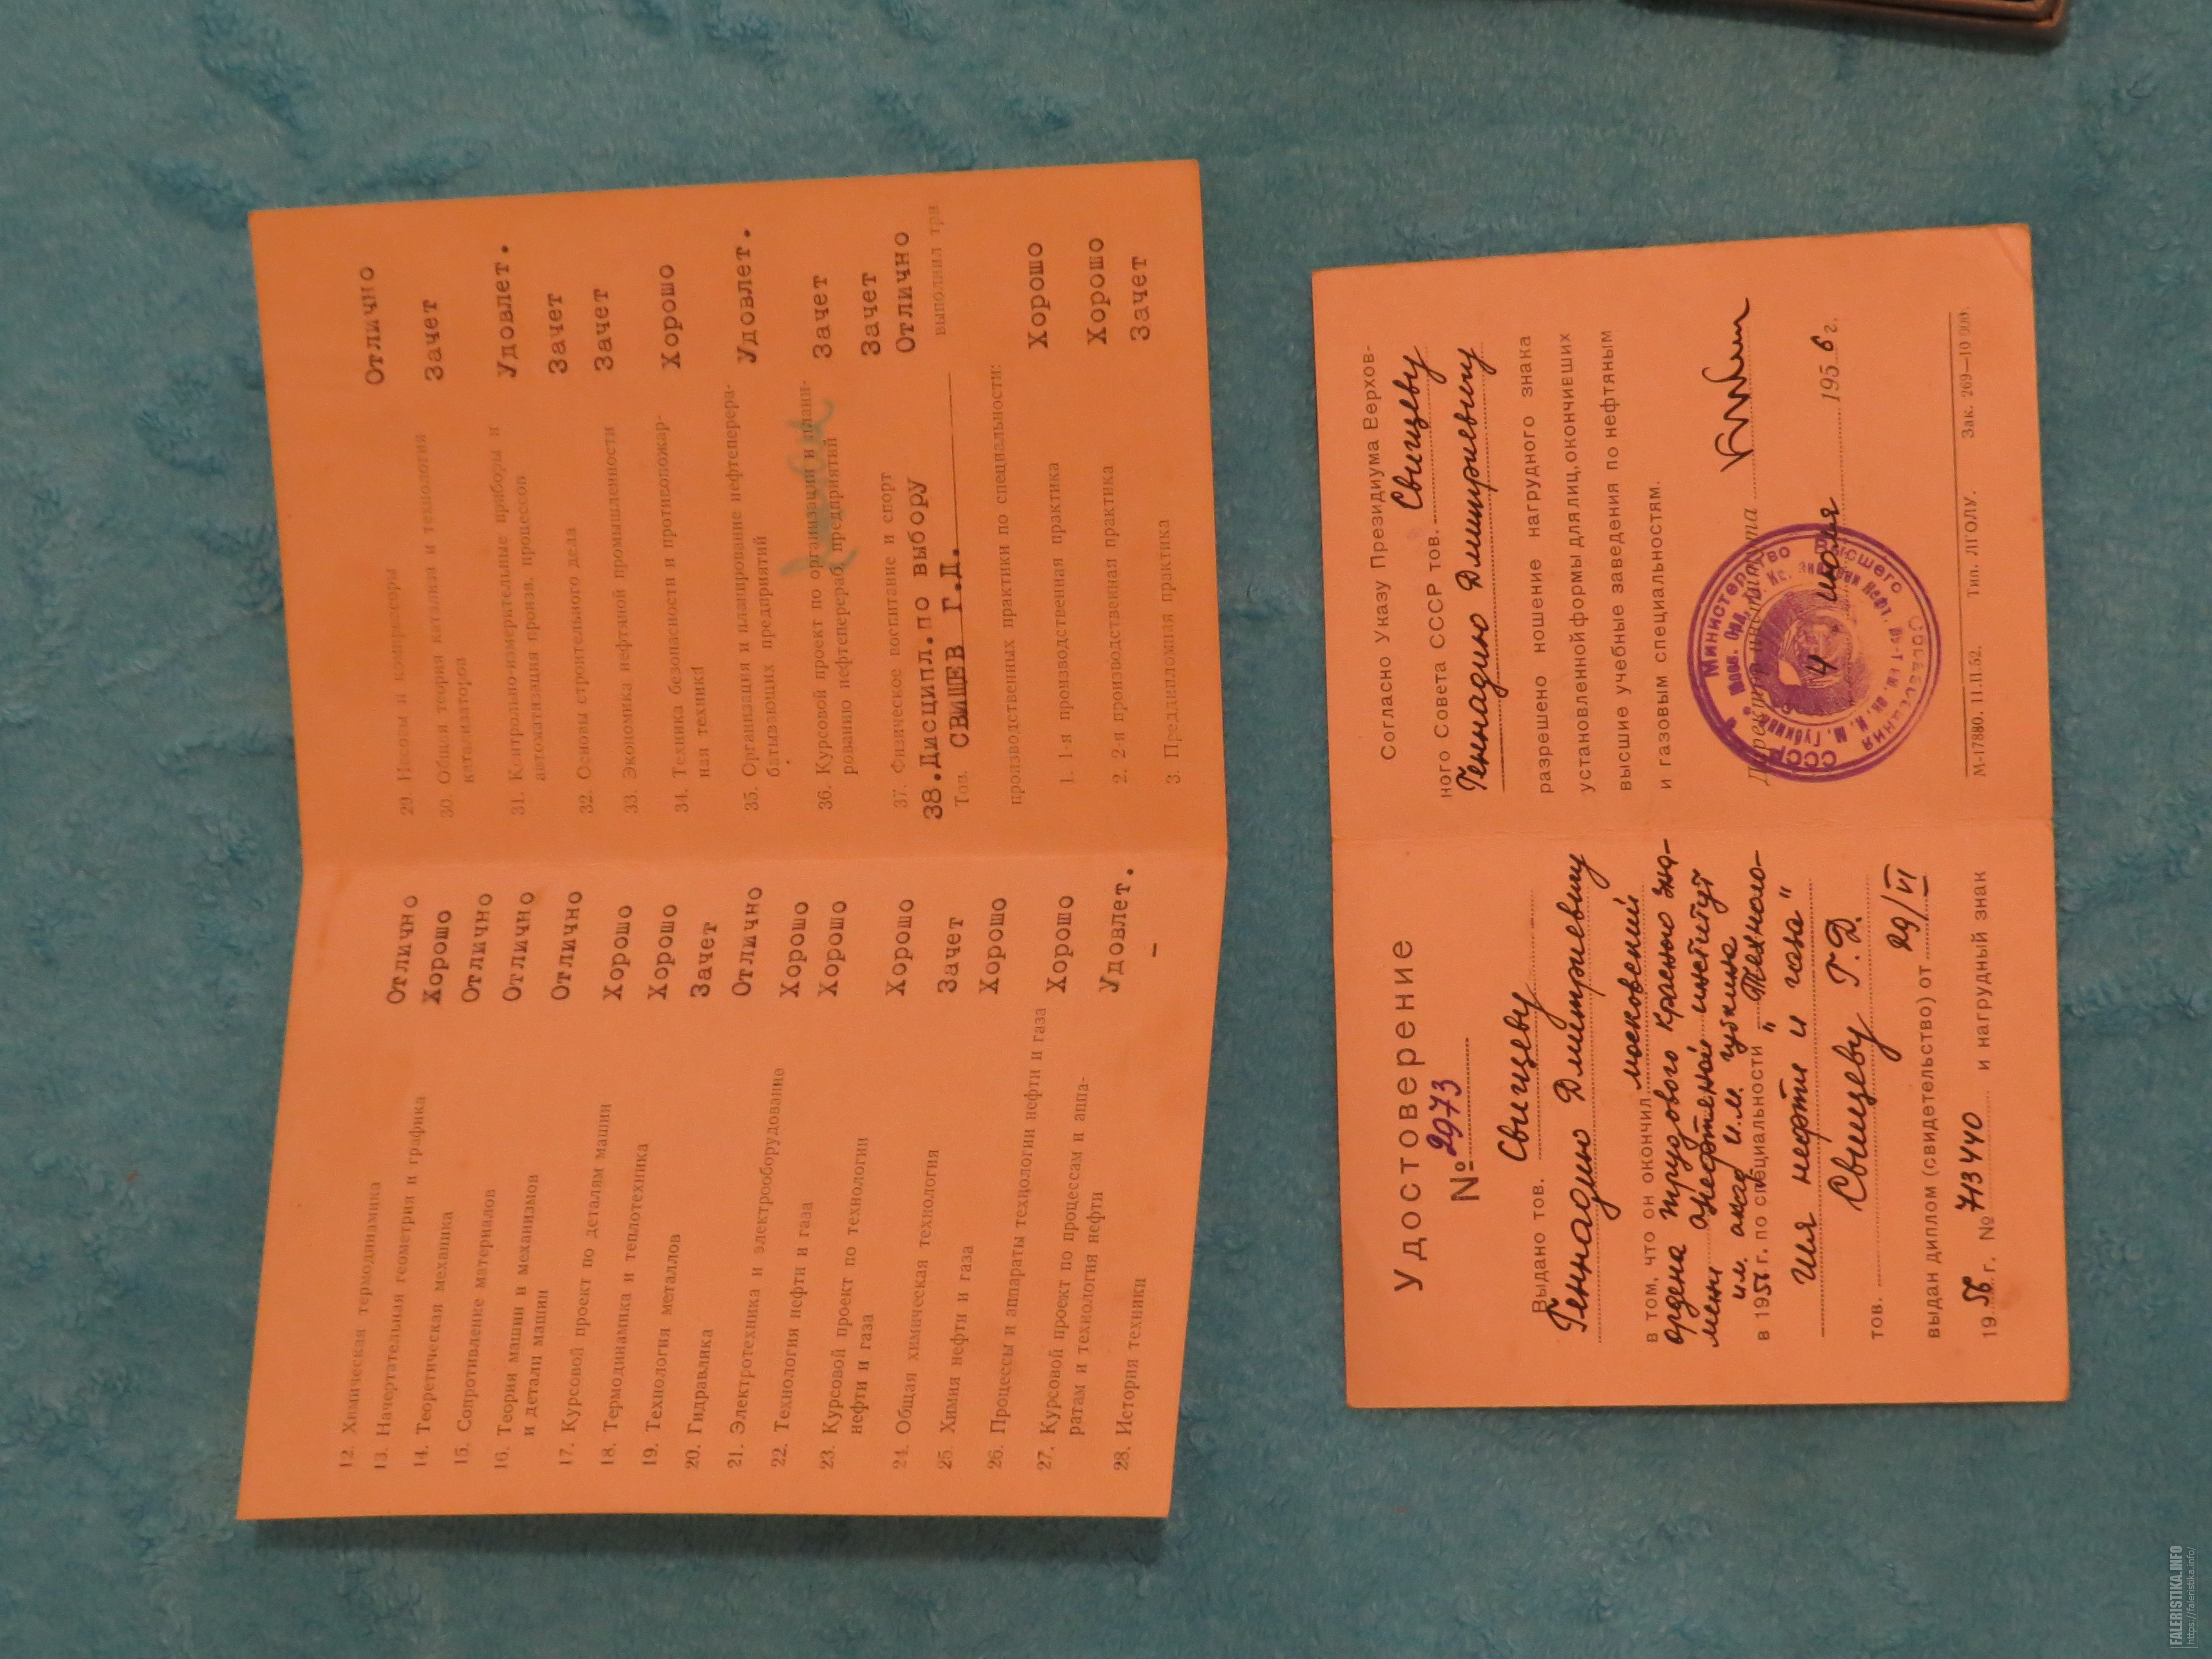 12. Химическая термодинамика Отлично
13. Начертательная геометрия и графика Хорошо
14. Теоретическая механика Отлично
15. Сопротивление материалов Отлично
16. Теория машин и механизмов
и детали машин Отлично
17. Курсовой проект по деталям машин Хорошо
18. Термодинамика и теплотехника Хорошо
19. Технология металлов Зачет
20. Гидравлика Отлично
21. Электротехника и электрооборудование Хорошо
22. Технология нефти и газа Хорошо
23. Курсовой проект по технологии
нефти и газа Хорошо
24. Общая химическая технология Зачет
25. Химия нефти и газа Хорошо
26. Процессы и аппараты технологии нефти и газа Хорошо
27. Курсовой проект по процессам и аппа-
ратам и технология нефти Удовлет.
28. История техники –
29. Насосы и компрессоры Отлично
30. Общая теория катализа и технология
катализаторов Зачет
31. Контрольно-измерительные приборы и
автоматизация произв. процессов Удовлет.
32. Основы строительного дела Зачет
33. Экономика нефтяной промышленности Зачет
34. Техника безопасности и противопожар-
ная техника Хорошо
35. Организация и планирование нефтеперера-
батывающих предприятий Удовлет.
36. Курсовой проект по организации и плани-
рованию нефтеперераб. предприятий Зачет
37. Физическое воспитание и спорт Зачет
38. Дисципл. по выбору Отлично
Тов. СВИЩЕВ Г.Д. выполнил три
производственных практики по специальности:
1. 1-я производственная практика Хорошо
2. 2-я производственная практика Хорошо
3. Преддипломная практика Зачет
Удостоверение
№ 2973
Выдано тов. Свищеву
Геннадию Дмитриевичу
в том, что он окончил московский
ордена трудового красного зна-
мени нефтяной институт
им. акад. И.М. Губкина
в 1956 г. по специальности „Техноло-
гия нефти и газа"
тов. Свищеву Г.Д.
выдан диплом (свидетельство) от 29/VI
1956 г. № 713440 и нагрудный знак
Согласно Указу Президиума Верхов-
ного Совета СССР тов. Свищеву
Геннадию Дмитриевичу
разрешено ношение нагрудного знака
установленной формы для лиц, окончивших
высшие учебные заведения по нефтяным
и газовым специальностям.
Директор института
4 июля 1956 г.
Министерство Высшего Образования СССР
М-17880. 11.II.52. Тип. ЛГОЛУ. Зак. 269—10 000.
FALERISTIKA.INFO
https://faleristika.info/